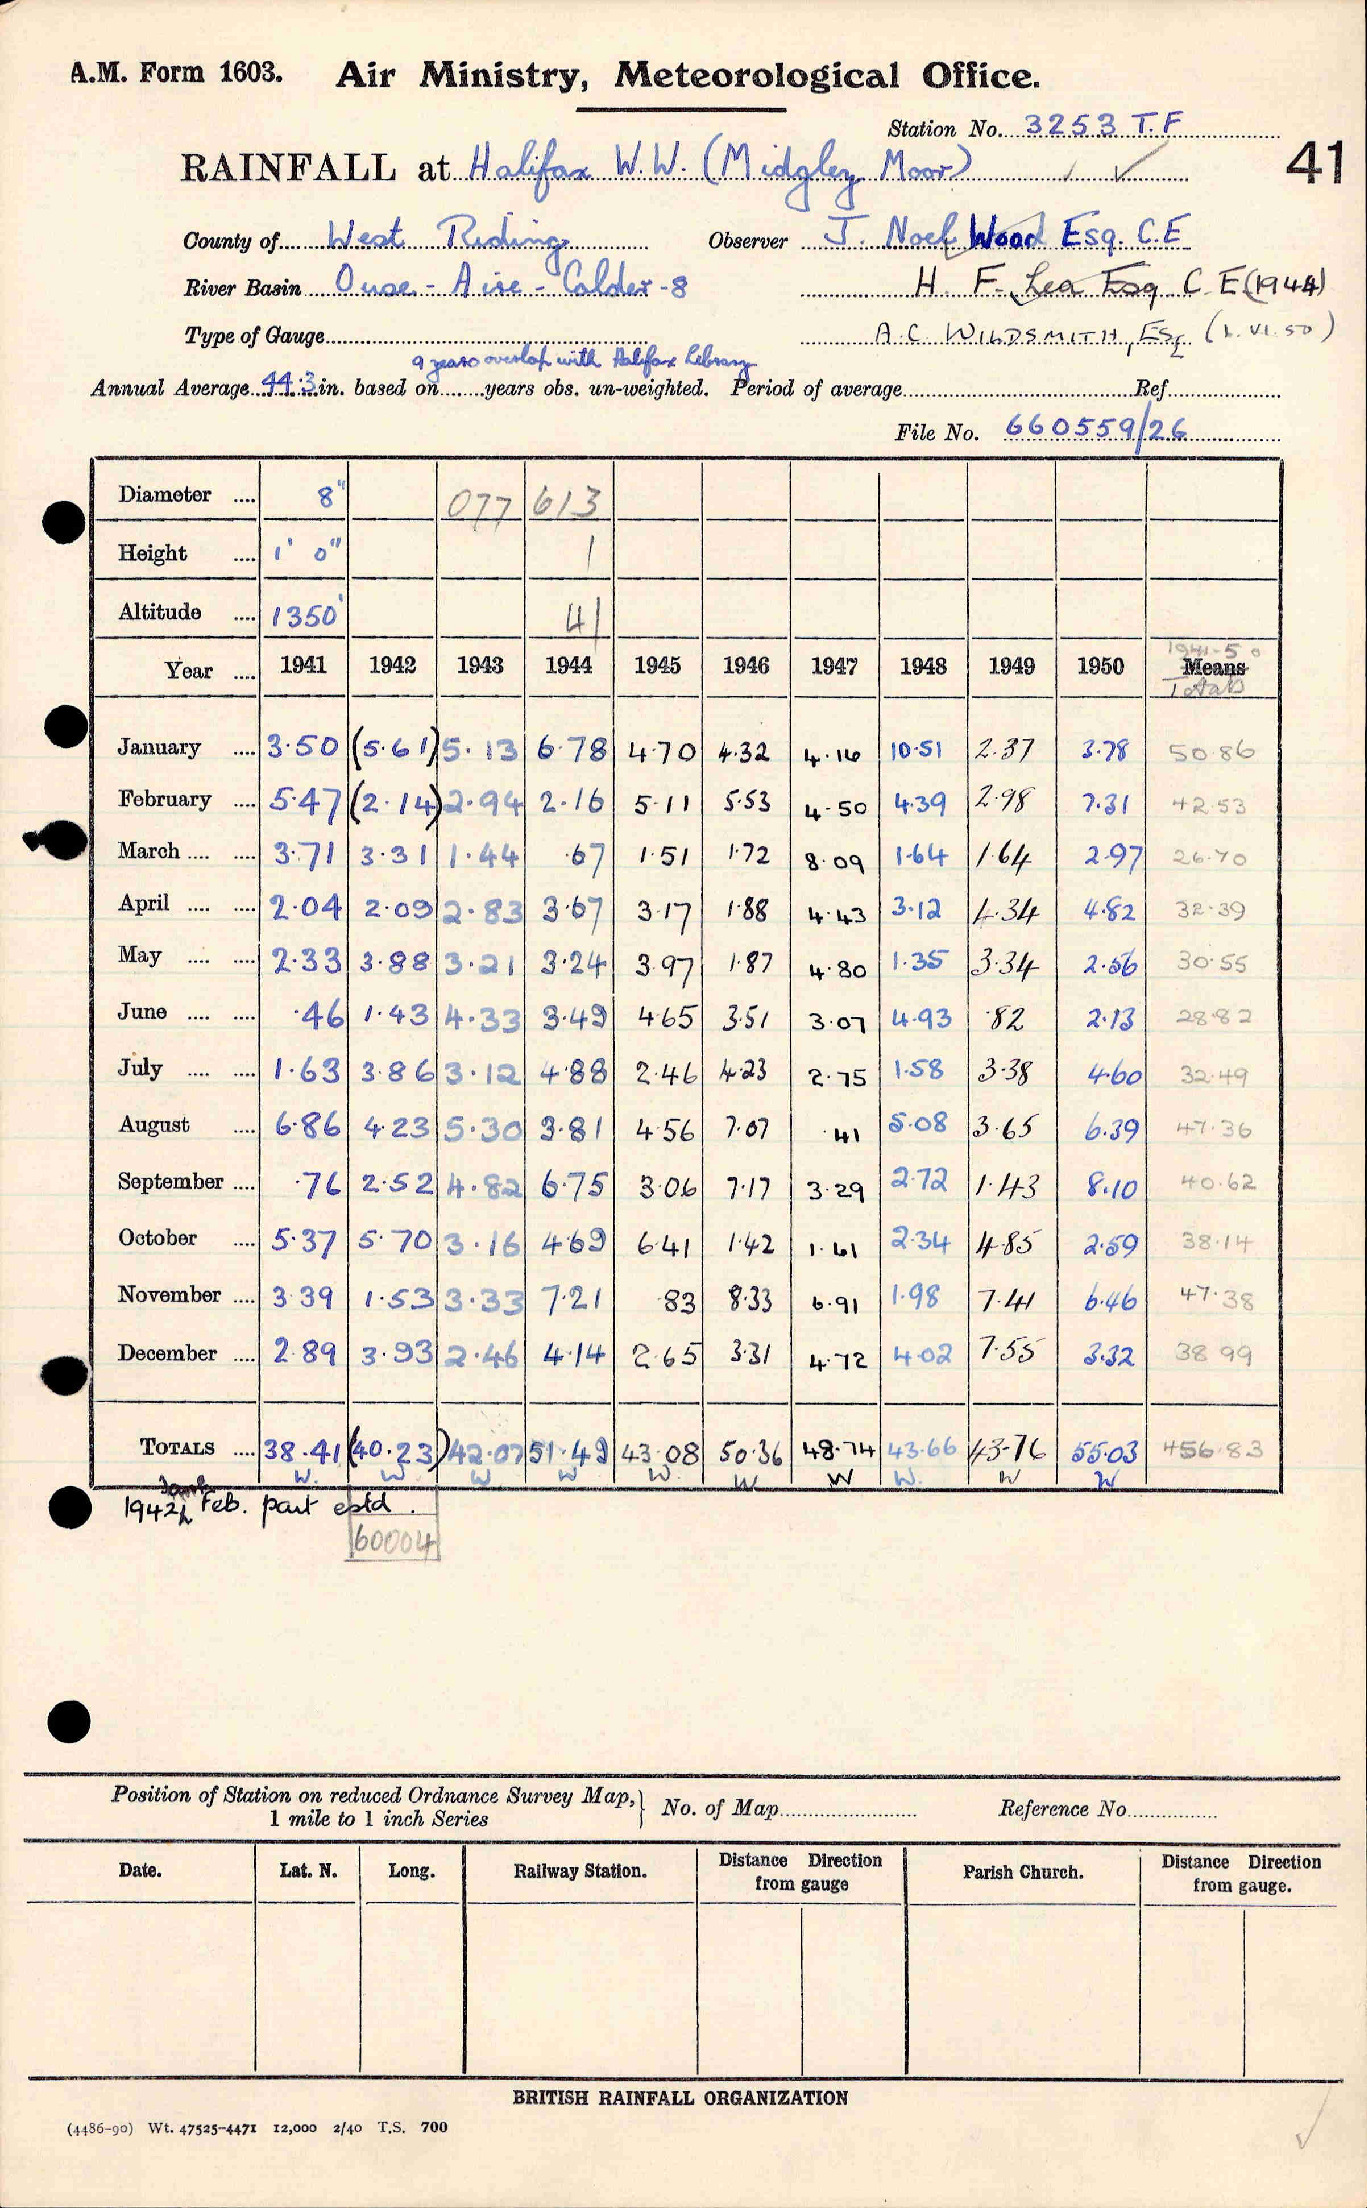 A.M. Form 1603. Air Ministry, Meteorological Office.
Station No. 3253 T.F
RAINFALL at Halifax W.W. (Midgley Moor)
41
County of West Riding Observer J. Noel Wood Esq. C.E
River Basin Ouse - Aire - Calder - 8 H. F. Lea Esq C.E (1944)
Type of Gauge A.C. WILDSMITH, ESq (1.VI.50)
9 years overlap with Halifax Library
Annual Average 44.3 in. based on years obs. un-weighted. Period of average Ref.
File No. 660559/26
Diameter 8" 077 613
Height 1' 0" 1
Altitude 1350' 41
1941-50
Year 1941 1942 1943 1944 1945 1946 1947 1948 1949 1950 Means
Totals
January 3.50 (5.61) 5.13 6.78 4.70 4.32 4.16 10.51 2.37 3.78 50.86
February 5.47 (2.14) 2.94 2.16 5.11 5.53 4.50 4.39 2.98 7.31 42.53
March 3.71 3.31 1.44 .67 1.51 1.72 8.09 1.64 1.64 2.97 26.70
April 2.04 2.09 2.83 3.67 3.17 1.88 4.43 3.12 4.34 4.82 32.39
May 2.33 3.88 3.21 3.24 3.97 1.87 4.80 1.35 3.34 2.56 30.55
June .46 1.43 4.33 3.49 4.65 3.51 3.07 4.93 .82 2.13 28.82
July 1.63 3.86 3.12 4.88 2.46 4.23 2.75 1.58 3.38 4.60 32.49
August 6.86 4.23 5.30 3.81 4.56 7.07 .41 5.08 3.65 6.39 47.36
September .76 2.52 4.82 6.75 3.06 7.17 3.29 2.72 1.43 8.10 40.62
October 5.37 5.70 3.16 4.69 6.41 1.42 1.61 2.34 4.85 2.59 38.14
November 3.39 1.53 3.33 7.21 .83 8.33 6.91 1.98 7.41 6.46 47.38
December 2.89 3.93 2.46 4.14 2.65 3.31 4.72 4.02 7.55 3.32 38.99
TOTALS 38.41 (40.23) 42.07 51.49 43.08 50.36 48.74 43.66 43.76 55.03 456.83
W. W W W W. W W W. W W
1942 Jan & Feb. part estd.
60004
Position of Station on reduced Ordnance Survey Map,} No. of Map Reference No.
1 mile to 1 inch Series
Date. Lat. N. Long. Railway Station. Distance Direction from gauge Parish Church. Distance Direction from gauge.
BRITISH RAINFALL ORGANIZATION
(4486-90) Wt. 47525-4471 12,000 2/40 T.S. 700